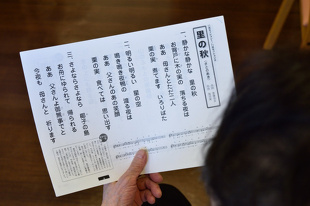 里の秋
一、静かな静かな 里の秋
お背戸に木の実の 落ちる夜は
ああ 母さんとただ二人
栗の実 煮てます いろりばた
二、明るい明るい 星の空
鳴き鳴き夜鴨の 渡る夜は
ああ 父さんのあの笑顔
栗の実 食べては 思い出す
三、さよならさよなら 椰子の島
お舟にゆられて 帰られる
ああ 父さんよ御無事でと
今夜も 母さんと 祈ります